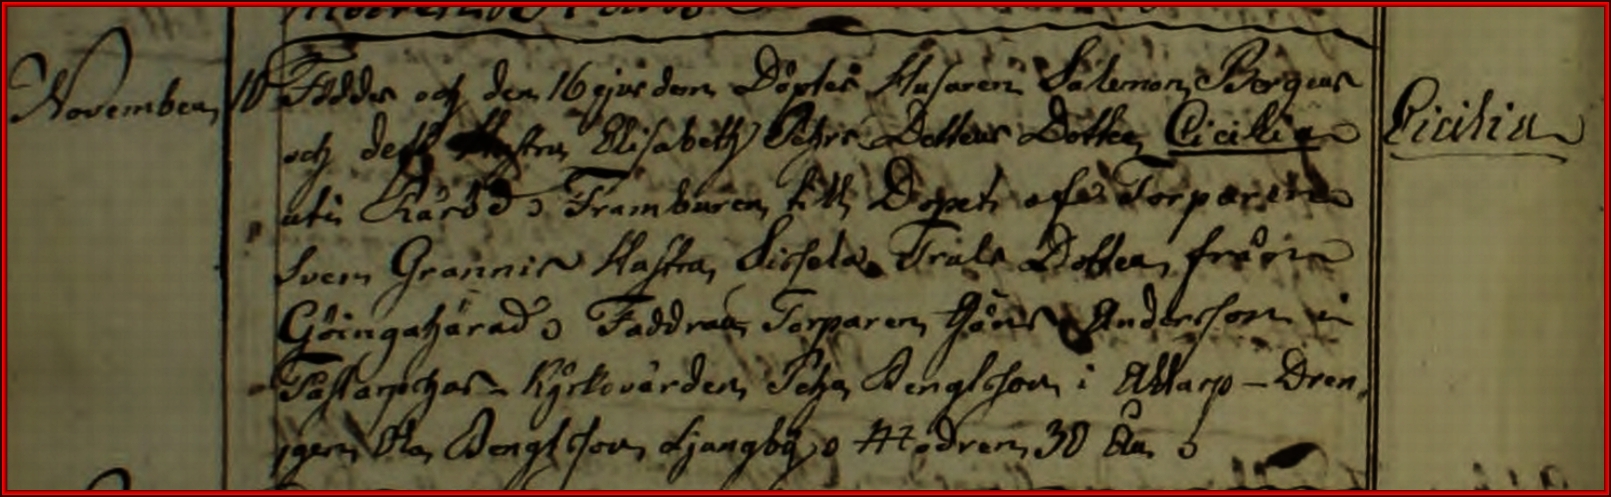 November 10 Föddes och den 16 ejusdem Döptes Husaren Salemon Bergens Cicilia
och dess Hustru Elisabeth Pehrs Dotters Dotter Cicilia
uti Kärød Framburen till Dopet af Torparen
Sven Grannis Hustru Sissela Truls Dotter från
Göingahärad Faddrar Torparen Håns Andersson i
Kÿrkovärden Pehr Bengtsson i Attarp - Dren,
gen Ola Bengtsson Ljungbÿ Modren 30 År